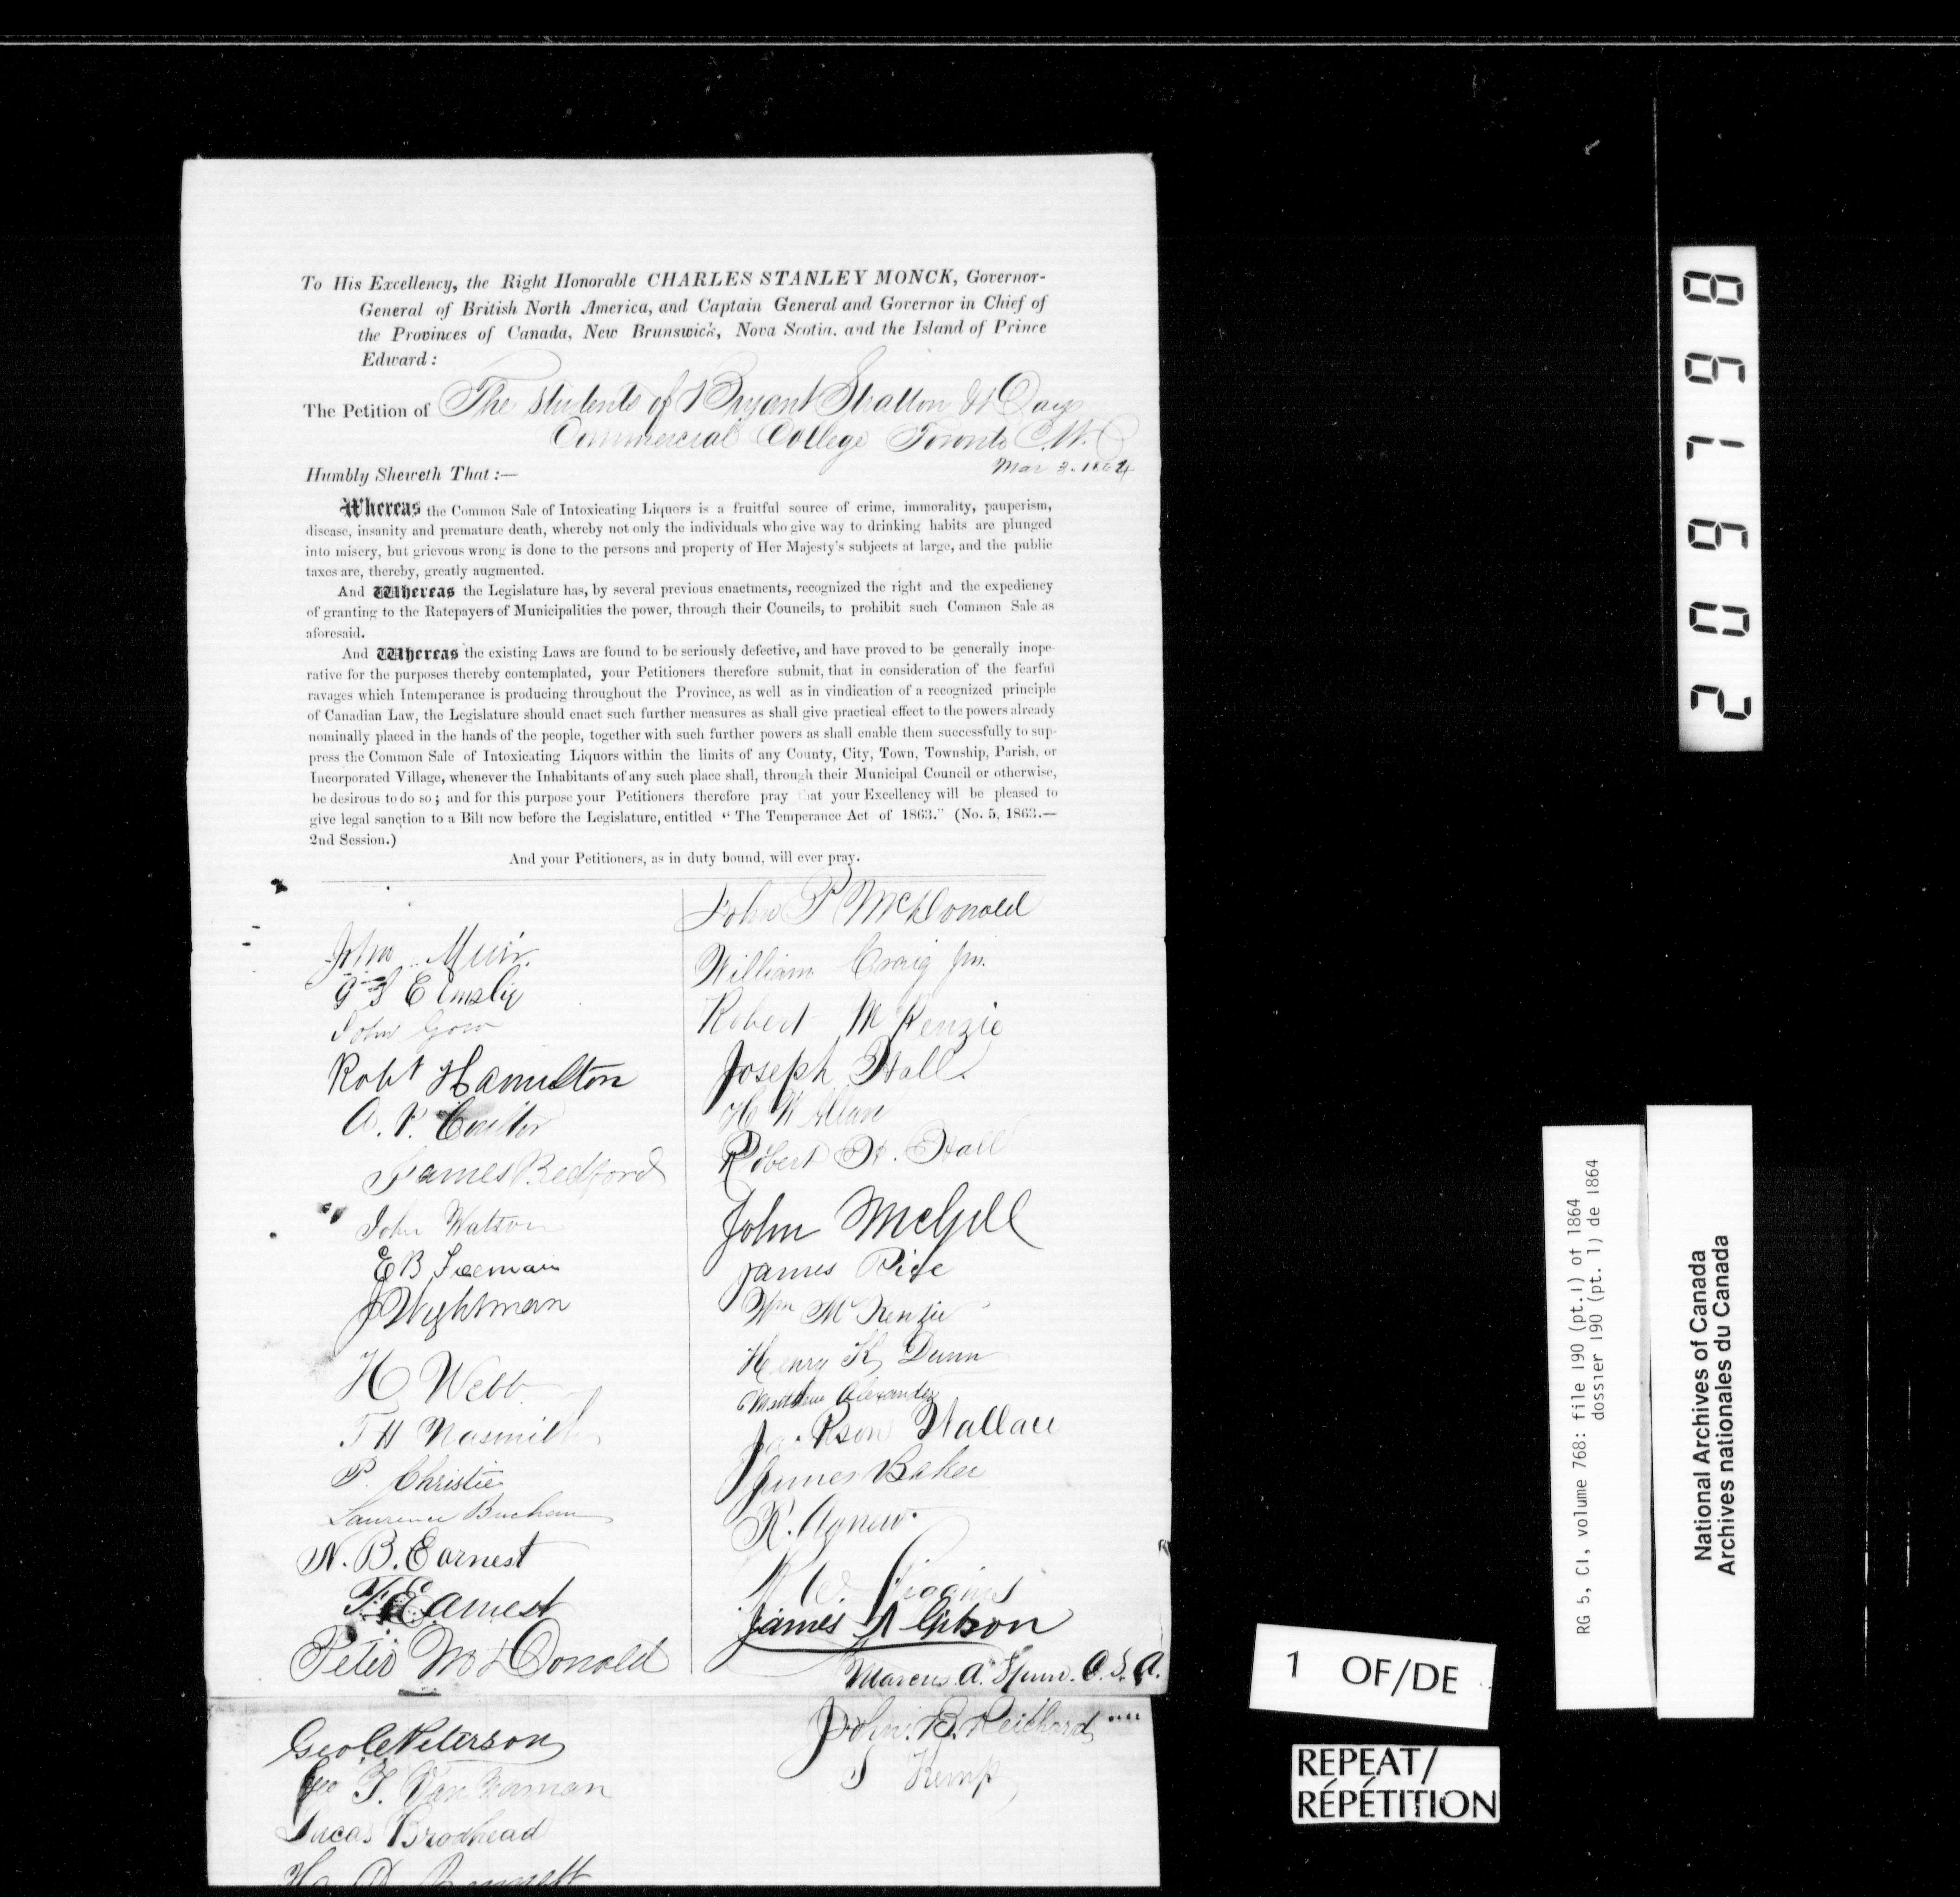 To His Excellency, the Right Honorable CHARLES STANLEY MONCK, Governor-
General of British North America, and Captain General and Governor in Chief of
the Provinces of Canada, New Brunswick, Nova Scotia, and the Island of Prince
Edward:
The Petition of The students of Bryant Stratton & Days
Commercial College Toronto C.W.
Mar 2. 1864
Humbly Sheweth That:—
Whereas the Common Sale of Intoxicating Liquors is a fruitful source of crime, immorality, pauperism,
disease, insanity and premature death, whereby not only the individuals who give way to drinking habits are plunged
into misery, but grievous wrong is done to the persons and property of Her Majesty's subjects at large, and the public
taxes are, thereby, greatly augmented.
And Whereas the Legislature has, by several previous enactments, recognized the right and the expediency
of granting to the Ratepayers of Municipalities the power, through their Councils, to prohibit such Common Sale as
aforesaid.
And Whereas the existing Laws are found to be seriously defective, and have proved to be generally inope-
rative for the purposes thereby contemplated, your Petitioners therefore submit, that in consideration of the fearful
ravages which Intemperance is producing throughout the Province, as well as in vindication of a recognized principle
of Canadian Law, the Legislature should enact such further measures as shall give practical effect to the powers already
nominally placed in the hands of the people, together with such further powers as shall enable them successfully to sup-
press the Common Sale of Intoxicating Liquors within the limits of any County, City, Town, Township, Parish, or
Incorporated Village, whenever the Inhabitants of any such place shall, through their Municipal Council or otherwise,
be desirous to do so; and for this purpose your Petitioners therefore pray that your Excellency will be pleased to
give legal sanction to a Bill now before the Legislature, entitled "The Temperance Act of 1863." (No. 5, 1863.—
2nd Session.)
And your Petitioners, as in duty bound, will ever pray.
John Muir
G S Elmslie
John Gow
Robt Hamilton
A. P. Coulter
James Bedford
John Watson
E B Freeman
J Wightman
H Webb
T H Nasmith
P. Christie
Laurence Bucham
N. B. Earnest
F. Earnest
Peter McDonald
Geo C Peterson
Geo T. Van Norman
Lucas Brodhead
John P McDonald
William Craig Jnr.
Robert McKenzie
Joseph Hall
H W Allan
Robert H. Hall
John McGill
James Rice
Wm McKenzie
Henry K Dunn
Matthew Alexander
Jackson Wallace
James Baker
R. Agnew.
R W
James A Gibson
Marcus A. C.S.A.
John. B. Reichard "" 
S Kemp
2 0 9 1 9 8
RG 5, C1, volume 768: file 190 (pt.1) of 1864
dossier 190 (pt. 1) de 1864
National Archives of Canada
Archives nationales du Canada
1 OF/DE
REPEAT/
RÉPÉTITION